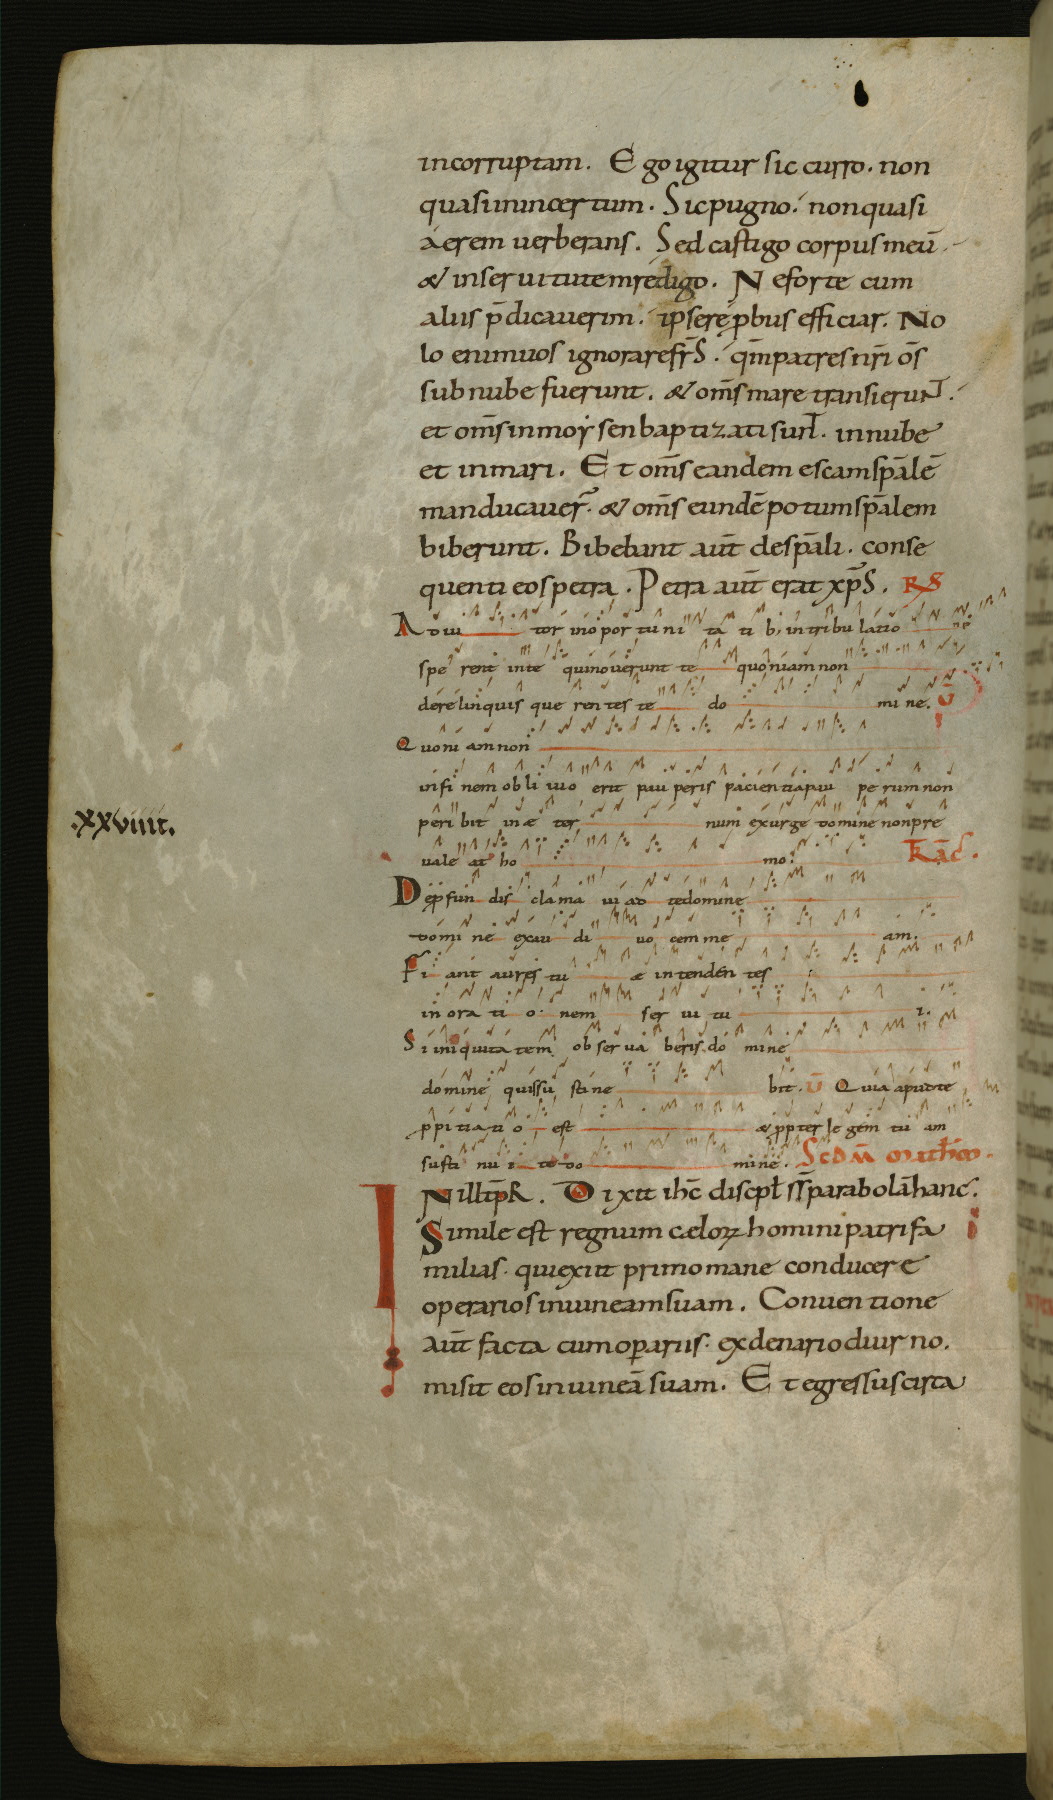 incorruptam. Ego igitur sic curro. non
quasi inincertum. Sic pugno. non quasi
aerem uerberans. Sed castigo corpus meū.
& inseruitutem redigo. Neforte cum
aliis p̄dicauerim. ipse rep̱bus efficiar. No
lo enim uos ignorare fr̄S. qm̄ patres nr̄i om̄s
sub nube fuerunt. & om̄s mare transierunt.
et om̄s inmoysen baptizati sunt. innube
et inmari. Et om̄s eandem escam sp̄alē
manducauer̄. & om̄s eundē potum sp̄alem
biberunt. Bibebant aut̄ de sp̄ali. conse
quenti eos petra. Petra aut̄ erat xp̄S. RS
Adiu tor inopor tuni ta ti b; intribu latio ne
spe rent inte qui nouerunt te quoniam non
dere linquis que rentes te do mi ne. V̄
Quoni am non
infi nem obli uio erit pau peris pacientia pau perum non
peri bit in æ ter num exurge domine non pre
uale at ho mo. TRAC̄.
Dep̱fun dis clama ui ad te domine
domi ne exau di uo cem me am.
Fi ant aures tu æ intenden tes
in ora ti o nem ser ui tu i.
Si iniquitatem obserua beris do mine
domine quis su stine bit. V̄ Quia apud te
p̱pitiati o est & p̱pter legem tu am
susti nu i te do mine. Scdm̄ matheu.
.XXVIIII.
INillt̄p̄R. Dixit ih̄c discpl̄ ss̄ parabolā hanc.
Simile est regnum cælorꝝ homini patrifa
milias. qui exiit primo mane conducere
operarios inuineam suam. Conuentione
aut̄ facta cum oꝑariis. ex denario diurno.
misit eos in uineā suam. Et egressus circa